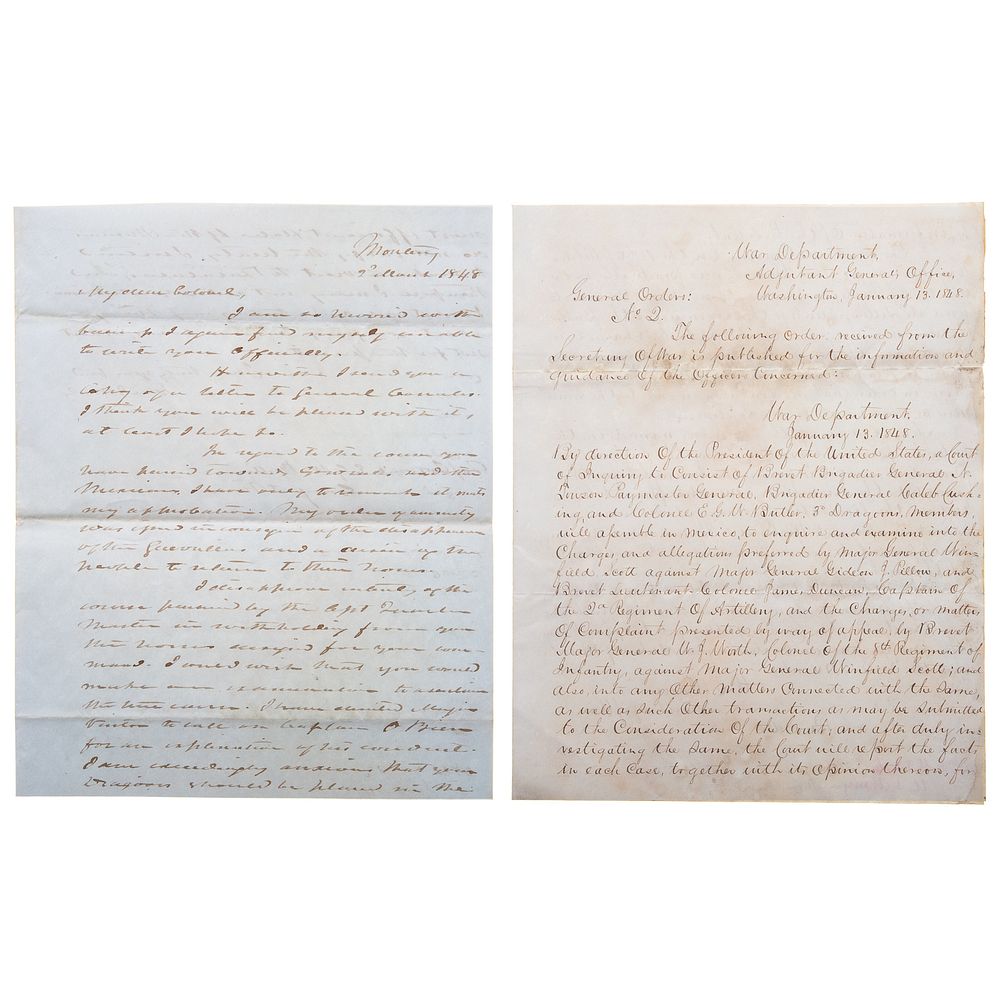 Monterey
2d March 1848
My dear Colonel,
I am so worried with
business I again find myself unable
to write you Officially.
Herewith I send you a
copy of a letter to General Canales.
I think you will be pleased with it,
at least I hope so.
In regard to the course you
have pursued towards Gonzales and the
Mexicans, I have only to remark it meets
my approbation. My order of amnesty
was issued in consequence of the disappearance
of the Guerrillas and a desire of the
people to return to their homes.
I disapprove entirely of the
course pursued by the Asst Quarter
Master in withholding from you
the horses assigned for your com-
mand. I could wish that you would
make an examination to ascertain
the true cause. I have directed Major
to call on Captain O'Brien
for an explanation of his conduct.
I am exceedingly anxious that your
Dragoons should be placed in the
War Department,
Adjutant General's Office,
Washington, January 13. 1848.
General Orders:
No 2.
The following order received from the
Secretary Of War is published for the information and
Guidance Of the Officers Concerned:
War Department.
January 13. 1848.
By direction Of the President Of the United States, a Court
of Inquiry to Consist Of Brevet Brigadier General N.
Towson, Paymaster General, Brigadier General Caleb Cush-
ing, and Colonel E. G. W. Butler, 3d Dragoons, Members,
will assemble in Mexico, to enquire and examine into the
Charges and allegations preferred by Major General Win-
field Scott against Major General Gideon J. Pillow, and
Brevet Lieutenant Colonel James Duncan, Captain Of
the 2d Regiment Of Artillery, and the Charges, or matters
Of Complaint presented by way of appeal, by Brevet
Major General W. J. Worth, Colonel Of the 8th Regiment of
Infantry, against Major General Winfield Scott; and
also, into any Other Matters Connected with the Same,
as well as Such Other transactions as may be Submitted
to the Consideration Of the Court; and after duly in-
vestigating the Same, the Court will report the facts
in each Case, together with its Opinion thereon, for